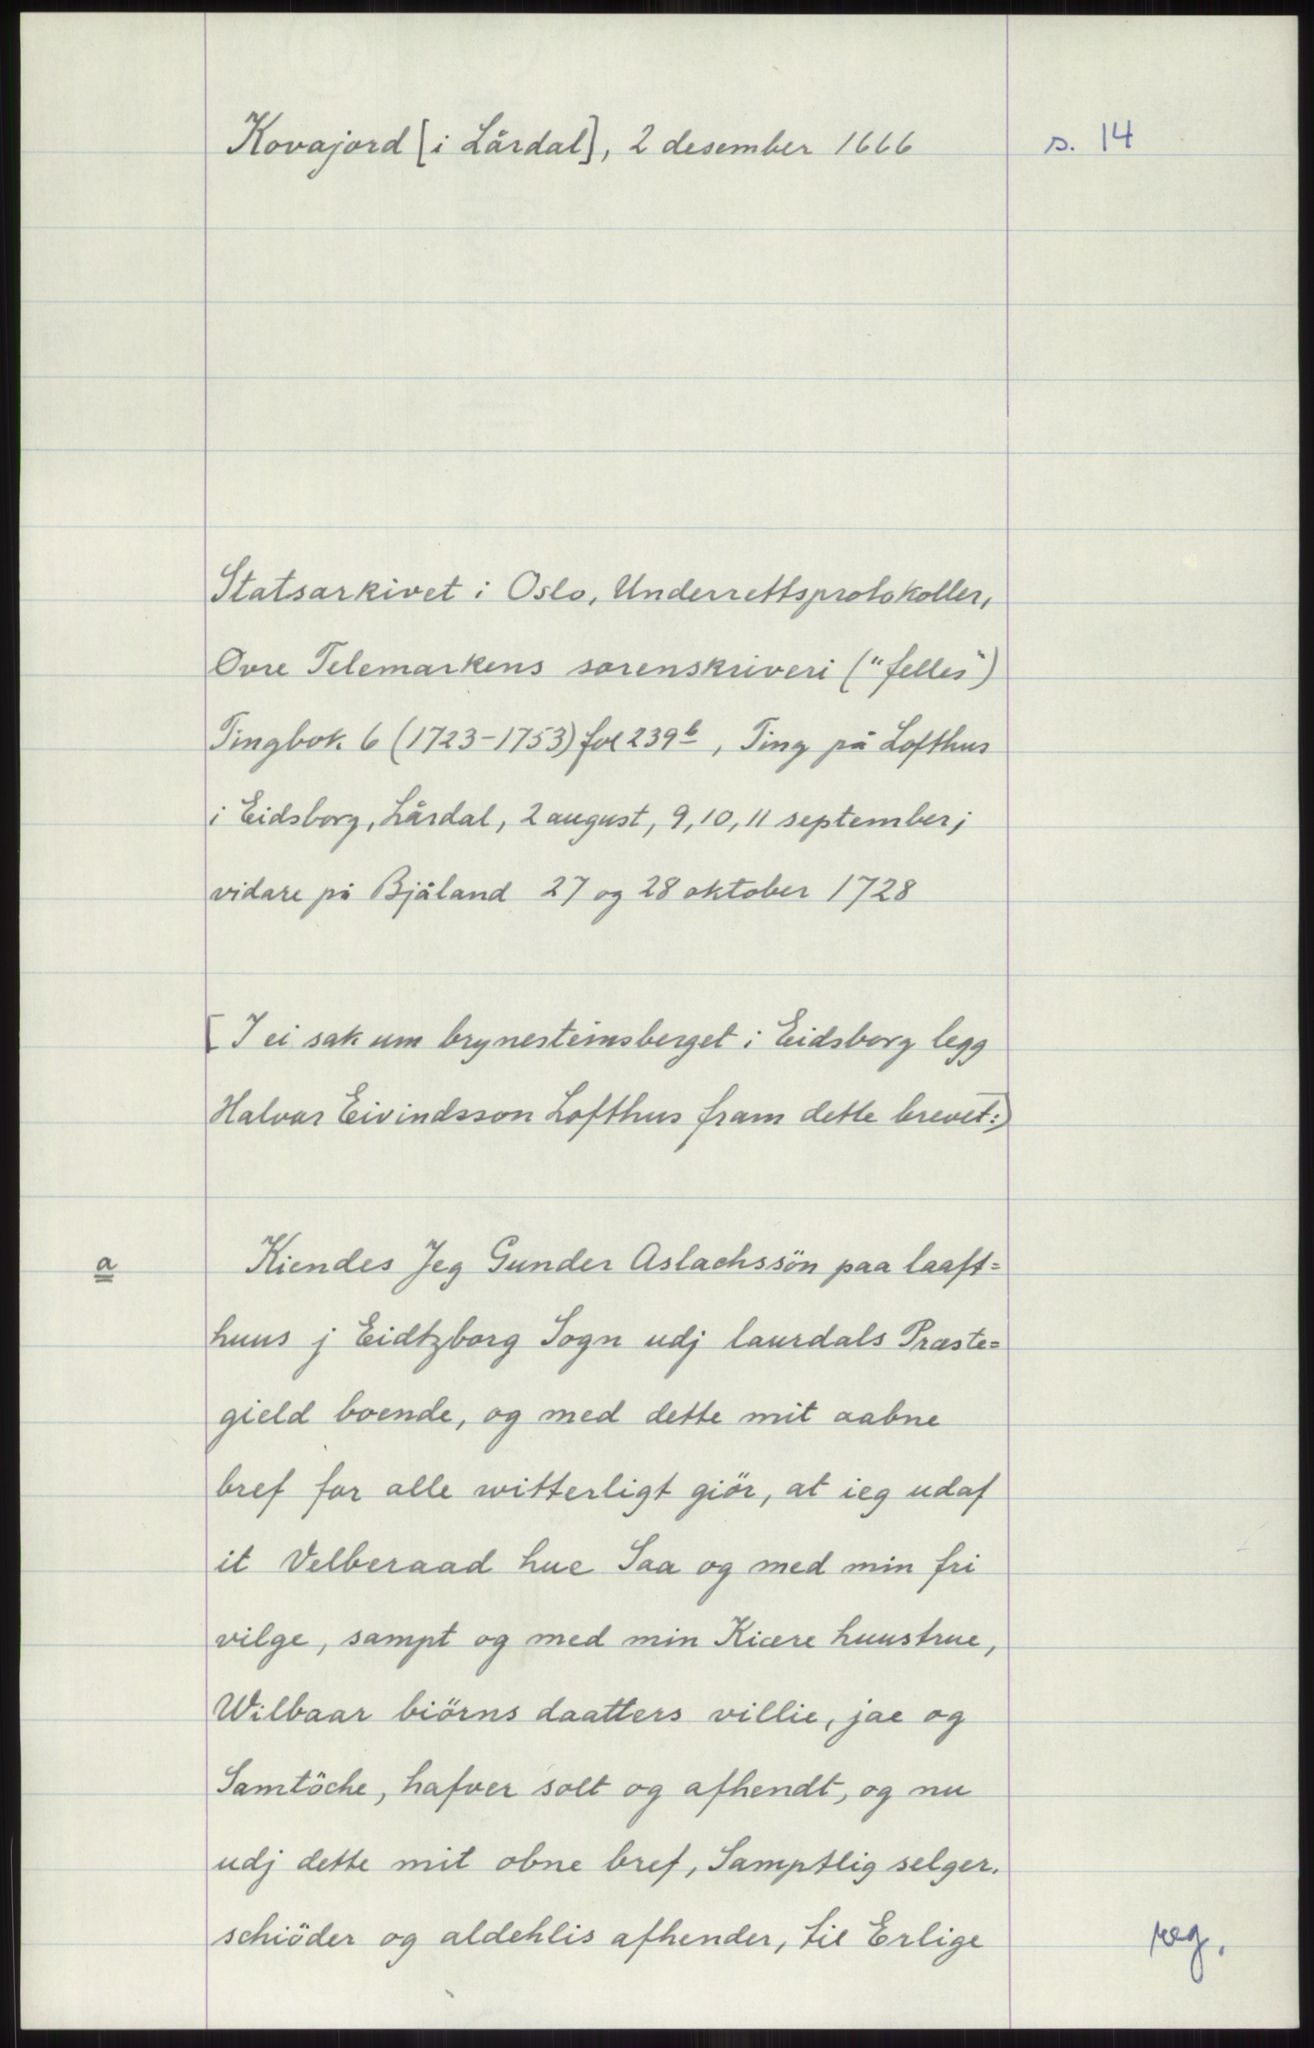 Kovajord [i Lårdal], 2 desember 1666
s. 14
Statsarkivet i Oslo, Underrettsprotokoller,
Øvre Telemarkens sorenskriveri ("felles")
Tingbok 6 (1723-1753) fol 239b, Ting på Lofthus
i Eidsborg, Lårdal, 2 august, 9, 10, 11 september;
vidare på Bjåland 27 og 28 oktober 1728
[I ei sak um brynesteinsberget i Eidsborg legg
Halvor Eivindsson Lofthus fram dette brevet:]
a
Kiendes Jeg Gunder Aslachssön paa laaft=
huus j Eidtzborg Sogn udj laurdals Præste=
gield boende, og med dette mit aabne
bref for alle witterligt giör, at ieg udaf
it Velberaad hue Saa og med min fri
vilge, sampt og med min Kiære huustrue,
Wilbaar biörns daatters villie, jae og
Samtöche, hafver solt og afhendt, og nu
udj dette mit obne bref, Samptlig selger.
schiöder og aldehlis afhender, til Erlige
reg.